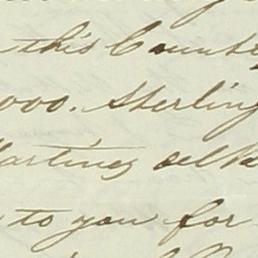 this Country
000. Sterling
Martinez
to you for